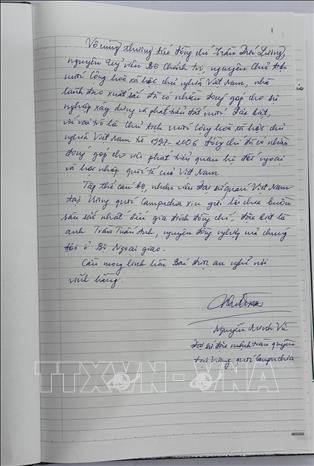 Vô cùng thương tiếc đồng chí Trần Đức Lương,
nguyên Uỷ viên Bộ Chính trị, nguyên Chủ tịch
nước Cộng hoà xã hội chủ nghĩa Việt Nam, nhà
lãnh đạo xuất sắc đã có nhiều đóng góp cho sự
nghiệp xây dựng và phát triển đất nước. Đặc biệt,
với vai trò là Chủ tịch nước Cộng hoà xã hội chủ
nghĩa Việt Nam từ 1997-2006 đồng chí đã có nhiều
đóng góp cho với phát triển quan hệ đối ngoại
và hội nhập quốc tế của Việt Nam.
Tập thể cán bộ, nhân viên Đại sứ quán Việt Nam
tại Vương quốc Campuchia xin gửi lời chia buồn
sâu sắc nhất đến gia đình đồng chí, đặc biệt là
anh Trần Tuấn Anh, nguyên đồng nghiệp của chúng
tôi ở Bộ Ngoại giao.
Cầu mong linh hồn Bác được an nghỉ nơi
vĩnh hằng.
Nguyễn Minh Vũ
Đại sứ đặc mệnh toàn quyền
tại Vương quốc Campuchia
TTXVN-VNA